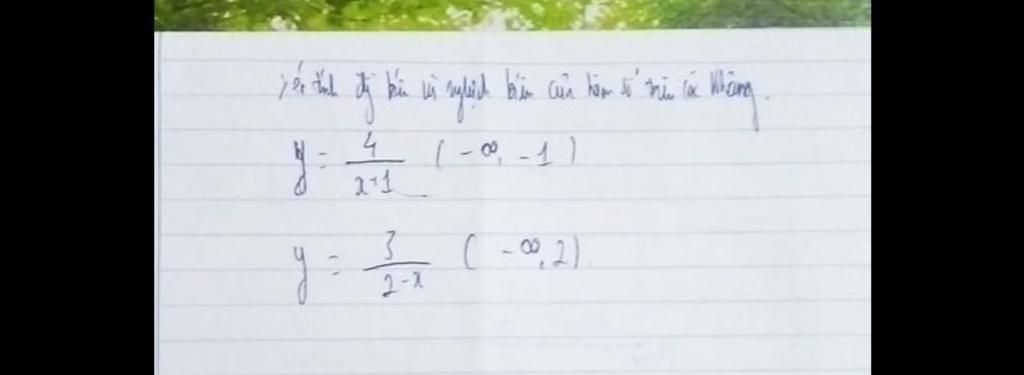 xét tính đg biến và nghịch biến của hàm số trên các khoảng.
y = 4/(x+1) (-∞, -1)
y = 3/(2-x) (-∞, 2)